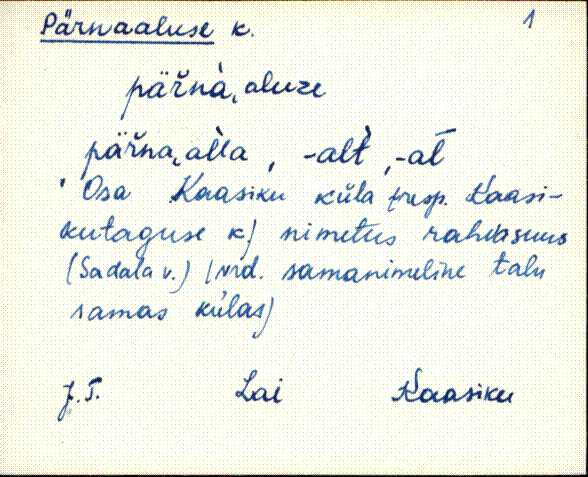 Pärnaaluse k. 1
pär̆nà, aluze
pär̆na, al̀la, -al̀t, -al̄
' Osa Kaasiku küla (resp. Kaasi-
kutaguse k) nimetus rahvasuus
(Sadala v.) (vrd. samanimeline talu
samas külas)
J. T. Lai Kaasiku